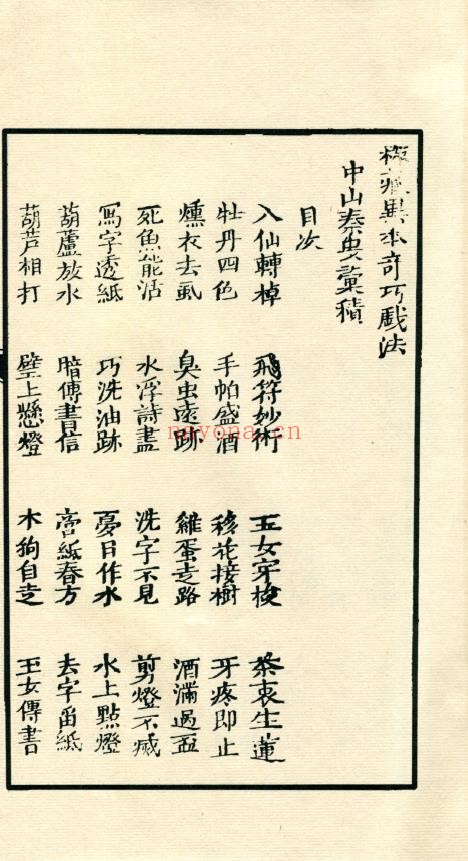 藏異本奇巧戲法
中山秦叟彙積
目次
八仙轉棹 飛符妙術 玉女穿梭 生蓮
牡丹四色 手帕盛酒 移花接樹 牙疼即止
燻衣去虱 臭虫遠跡 雞蛋走路 酒滿過盃
死魚能活 水浮詩畫 洗字不見 剪燈不滅
寫字透紙 巧洗油跡 憂日作水 水上點燈
葫蘆放水 暗傳書信 紙春方 去字畱紙
葫芦相打 壁上懸燈 木狗自走 玉女傳書
nayona.cn